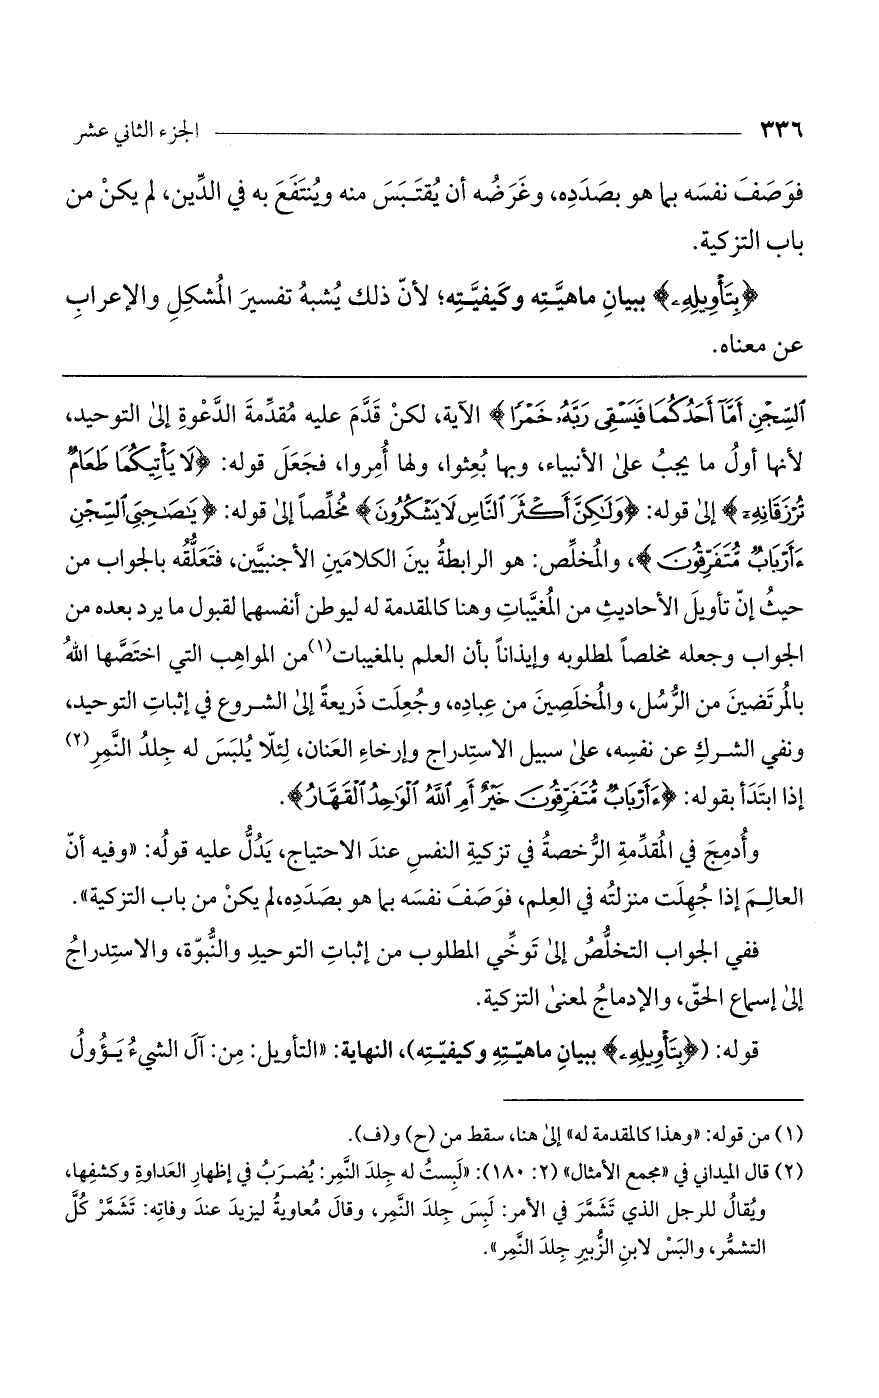 ٣٣٦ الجزء الثاني عشر
فوَصَفَ نفسَه بما هو بصَدَدِه، وغَرَضُه أن يُقتَبَسَ منه ويُنتَفَعَ به في الدِّين، لم يكنْ من
باب التزكية.
﴿بِتَأْوِيلِهِۦ﴾ ببيانِ ماهيَّتِه وكَيفيَّتِه؛ لأنّ ذلك يُشبهُ تفسيرَ المُشكِلِ والإعرابِ
عن معناه.
ٱلسِّجْنِ أَمَّآ أَحَدُكُمَا فَيَسْقِى رَبَّهُۥ خَمْرًا﴾ الآية، لكنْ قَدَّمَ عليه مُقدِّمةَ الدَّعْوةِ إلىٰ التوحيد،
لأنها أولُ ما يجبُ علىٰ الأنبياء، وبها بُعِثوا، ولها أُمِروا، فجَعَلَ قوله: ﴿لَا يَأْتِيكُمَا طَعَامٌ
تُرْزَقَانِهِۦٓ﴾ إلىٰ قوله: ﴿وَلَٰكِنَّ أَكْثَرَ ٱلنَّاسِ لَا يَشْكُرُونَ﴾ مُخلِّصاً إلىٰ قوله: ﴿يَٰصَٰحِبَىِ ٱلسِّجْنِ
ءَأَرْبَابٌ مُّتَفَرِّقُونَ﴾، والمُخلِّص: هو الرابطةُ بينَ الكلامَينِ الأجنبيَّين، فتَعَلُّقُه بالجواب من
حيثُ إنّ تأويلَ الأحاديثِ من المُغيَّباتِ وهنا كالمقدمة له ليوطن أنفسهما لقبول ما يرد بعده من
الجواب وجعله مخلصاً لمطلوبه وإيذاناً بأن العلم بالمغيبات(١)من المواهِب التي اختَصَّها اللهُ
بالمُرتَضينَ من الرُّسُل، والمُخلَصِينَ من عِبادِه، وجُعِلَت ذَريعةً إلىٰ الشروع في إثباتِ التوحيد،
ونفي الشركِ عن نفسِه، علىٰ سبيل الاستِدراج وإرخاءِ العَنان، لِئلّا يُلبَسَ له جِلدُ النَّمِرِ(٢)
إذا ابتَدَأ بقوله: ﴿ءَأَرْبَابٌ مُّتَفَرِّقُونَ خَيْرٌ أَمِ ٱللَّهُ ٱلْوَٰحِدُ ٱلْقَهَّارُ﴾.
وأُدمِجَ في المُقدِّمةِ الرُّخصةُ في تزكيةِ النفسِ عندَ الاحتياج، يَدُلُّ عليه قولُه: «وفيه أنّ
العالِمَ إذا جُهِلَت منزلتُه في العِلم، فوَصَفَ نفسَه بما هو بصَدَدِه،لم يكنْ من باب التزكية».
ففي الجواب التخلُّصُ إلىٰ تَوخِّي المطلوب من إثباتِ التوحيدِ والنُّبوّة، والاستِدراجُ
إلىٰ إسماع الحقّ، والإدماجُ لمعنىٰ التزكية.
قوله: (﴿بِتَأْوِيلِهِۦ﴾ ببيانِ ماهيّتِهِ وكيفيّتِه)، النهاية: «التأويل: مِن: آلَ الشيءُ يَؤُولُ
(١) من قوله: «وهذا كالمقدمة له» إلىٰ هنا، سقط من (ح) و(ف).
(٢) قال الميداني في «مجمع الأمثال» (٢: ١٨٠): «لَبِستُ له جِلدَ النَّمِر: يُضرَبُ في إظهارِ العَداوةِ وكشفِها،
ويُقالُ للرجل الذي تَشَمَّرَ في الأمر: لَبِسَ جِلدَ النَّمِر، وقالَ مُعاويةُ ليزيدَ عندَ وفاتِه: تَشَمَّرْ كُلَّ
التشمُّر، والبَسْ لابنِ الزُّبيرِ جِلدَ النَّمِر».